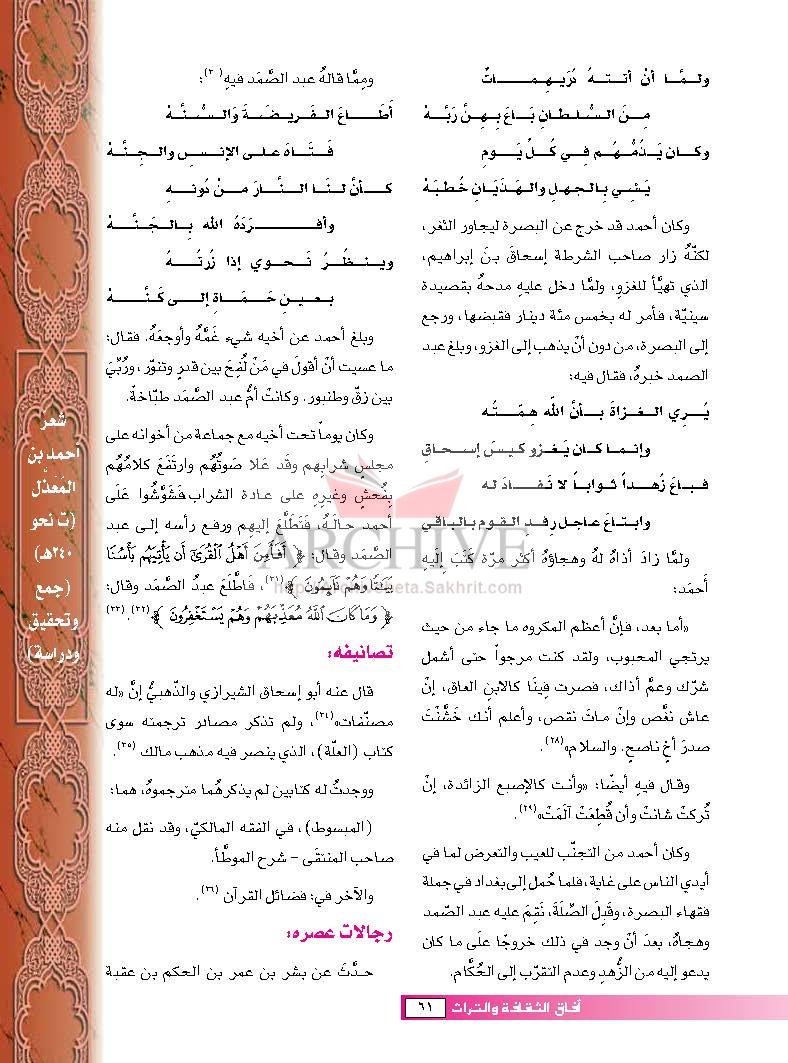 ولمَّا أنْ أتتهُ دُرَيهِمَاتٌ
مِنَ السُّلطانِ بَاعَ بِهِنَّ رَبَّهْ
وكان يَذُمُّهُم فِي كُلِّ يَومٍ
يَشِي بِالجهلِ والهَذَيَانِ خُطبَهْ
وكان أحمد قد خرج عن البصرة ليجاور الثغر،
لكنَّهُ زار صاحب الشرطة إسحاقَ بنَ إبراهيم،
الذي تهيَّأ للغزوِ، ولمَّا دخل عليهِ مدحهُ بقصيدة
سينيّة، فأمر له بخمس مئة دينار فقبضها، ورجع
إلى البصرة، من دون أنْ يذهب إلى الغزو، وبلغ عبد
الصمد خبرهُ، فقال فيه:
يُرِي الغزاةَ بأنَّ اللّه هِمَّتُه
وإنما كان يَغزو كيسَ إسحاقِ
فباعَ زُهداً ثواباً لا نَفادَ له
وابتاعَ عاجلِ رِفد القومِ بالباقي
ولمَّا زادَ أذاهُ لهُ وهجاؤهُ أكثر مرّة كَتَبَ إلَيهِ
أحمَد:
«أما بعد، فإنَّ أعظم المكروه ما جاء من حيث
يرتجي المحبوب، ولقد كنت مرجواً حتى أشمل
شرّك وعمَّ أذاك، فصرت فِينَا كالابنِ العاق، إنْ
عاش نغَّص وإنْ ماتَ نقص، وأعلم أنك خَشَّنْتَ
صدرَ أخٍ ناصحٍ. والسلام»(٢٨).
وقال فيه أيضًا: «وأنت كالإصبع الزائدة، إنْ
تُركتْ شانتْ وأن قُطِعَتْ آلَمَتْ»(٢٩).
وكان أحمد من التجنّب للعيب والتعرض لما في
أيدي الناس على غاية، فلما حُمل إلى بغداد في جملة
فقهاء البصرة، وقَبِلَ الصِّلَةَ، نَقِمَ عليه عبد الصّمد
وهجاهُ، بعدَ أنْ وجد في ذلك خروجًا علَى ما كان
يدعو إليه من الزُّهدِ وعدم التقرّب إلى الحُكَّام.
ومِمَّا قالهُ عبد الصَّمَد فيهِ(٣٠):
أَطَاعَ الفَريضَةَ وَالسُّنَّهْ
فَتَاهَ على الإنسِ والجِنَّهْ
كأنَّ لنَا النَّارَ مِنْ دُونِهِ
وأفرَدَهُ الله بالجَنَّهْ
وينظُرُ نَحوِي إذا زُرتُهُ
بعينِ حَمَاةٍ إلى كَنَّهْ
وبلغ أحمد عن أخيه شيء غمَّهُ وأوجعَهُ. فقال:
ما عسيت أنْ أقولَ في مَنْ لُقِحَ بين قدرٍ وتنّور، ورُبِّيَ
بين زقّ وطنبور. وكانتْ أمُّ عبد الصَّمَد طبَّاخةً.
وكان يوماً تحت أخيه مع جماعة من أخوانه على
مجلسِ شرابِهم وقَد عَلا صَوتُهُم وارتَفَعَ كلامُهُم
بِفُحشٍ وغيرِه على عادة الشراب فَشَوَّشُوا عَلَى
أحمد حالَهُ، فَتَطَلَّعَ إليهم ورفع رأسه إلى عبد
الصَّمَد وقال: ﴿أَفَأَمِنَ أَهْلُ الْقُرَىٰ أَن يَأْتِيَهُم بَأْسُنَا
بَيَٰتًا وَهُمْ نَآئِمُونَ﴾(٣١)، فاطَّلَعَ عبدُ الصَّمَد وقال:
﴿وَمَا كَانَ اللَّهُ مُعَذِّبَهُمْ وَهُمْ يَسْتَغْفِرُونَ﴾(٣٢).(٣٣)
تصانيفه:
قال عنه أبو إسحاق الشيرازي والذّهبيُّ إنَّ «له
مصنّفات»(٣٤)، ولم تذكر مصادر ترجمته سوى
كتاب (العلّة)، الذي ينصر فيه مذهب مالك (٣٥).
ووجدتُ له كتابين لم يذكرهُما مترجموهُ، هما:
(المبسوط)، في الفقه المالكيّ، وقد نقل منه
صاحب المنتقَى – شرح الموطَّأ.
والآخر في: فضائل القرآن (٣٦).
رجالات عصره:
حدَّثَ عن بشر بن عمر بن الحكم بن عقبة
شعر
أحمد بن
المُعَذَّل
(ت نحو
٢٤٠هـ)
(جمع
وتحقيق
ودراسة)
ARCHIVE
beta.Sakhrit.com
آفاق الثقافة والتراث ٦١